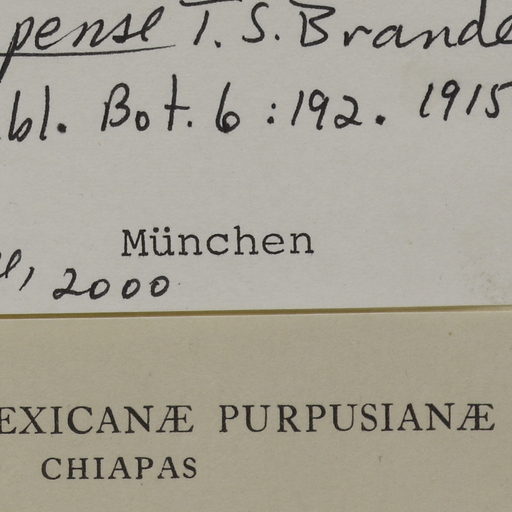 pense T. S. Brande
bl. Bot. 6 : 192. 1915
München
, 2000
EXICANÆ PURPUSIANÆ
CHIAPAS